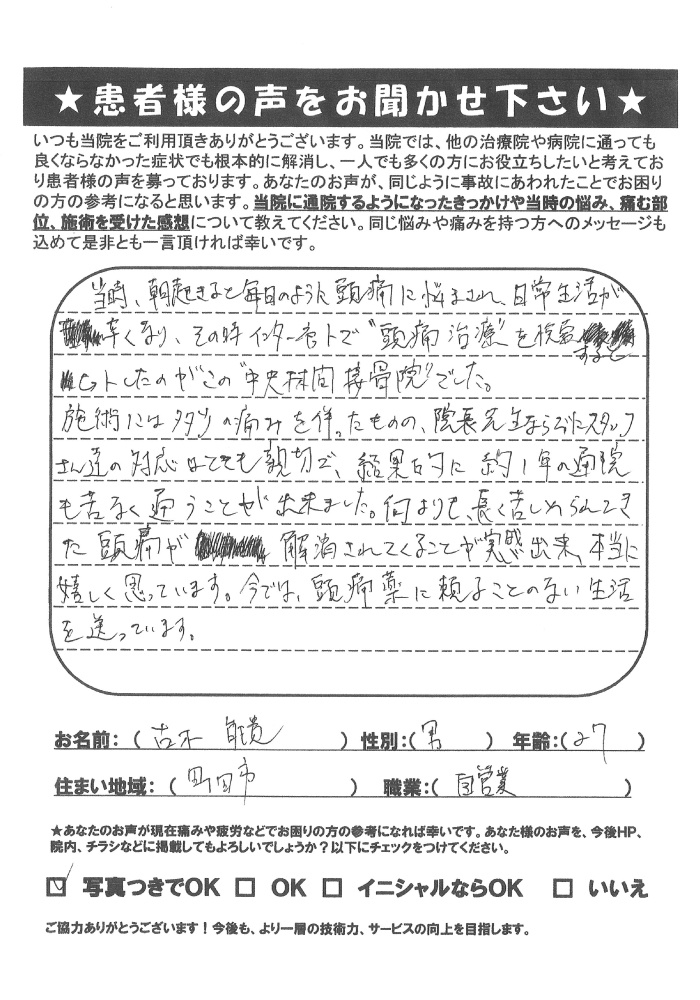 ★患者様の声をお聞かせ下さい★
いつも当院をご利用頂きありがとうございます。当院では、他の治療院や病院に通っても
良くならなかった症状でも根本的に解消し、一人でも多くの方にお役立ちしたいと考えてお
り患者様の声を募っております。あなたのお声が、同じように事故にあわれたことでお困り
の方の参考になると思います。当院に通院するようになったきっかけや当時の悩み、痛む部
位、施術を受けた感想について教えてください。同じ悩みや痛みを持つ方へのメッセージも
込めて是非とも一言頂ければ幸いです。
当時、朝起きると毎日のように頭痛に悩まされ、日常生活が
辛くなり、その時インターネットで"頭痛治療"を検索すると
ヒットしたのがこの"中央林間接骨院"でした。
施術には多少の痛みを伴ったものの、院長先生ならびにスタッフ
さん達の対応はとても親切で、結果的に約1年の通院
も苦なく通うことが出来ました。何よりも、長く苦しめられてき
た頭痛が解消されてくることが実感出来、本当に
嬉しく思っています。今では、頭痛薬に頼ることのない生活
を送っています。
お名前：（古木 貴）性別：（男）年齢：（27）
住まい地域：（町田市）職業：（自営業）
★あなたのお声が現在痛みや疲労などでお困りの方の参考になれば幸いです。あなた様のお声を、今後HP、
院内、チラシなどに掲載してもよろしいでしょうか？以下にチェックをつけてください。
☑ 写真つきでOK □ OK □ イニシャルならOK □ いいえ
ご協力ありがとうございます！今後も、より一層の技術力、サービスの向上を目指します。